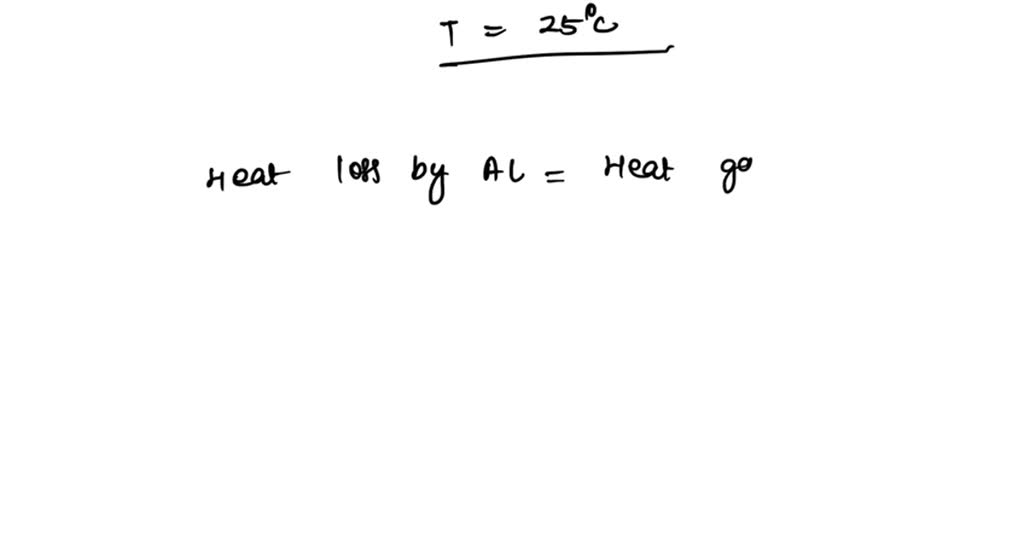 T = 25°C
Heat loss by AL = Heat ga